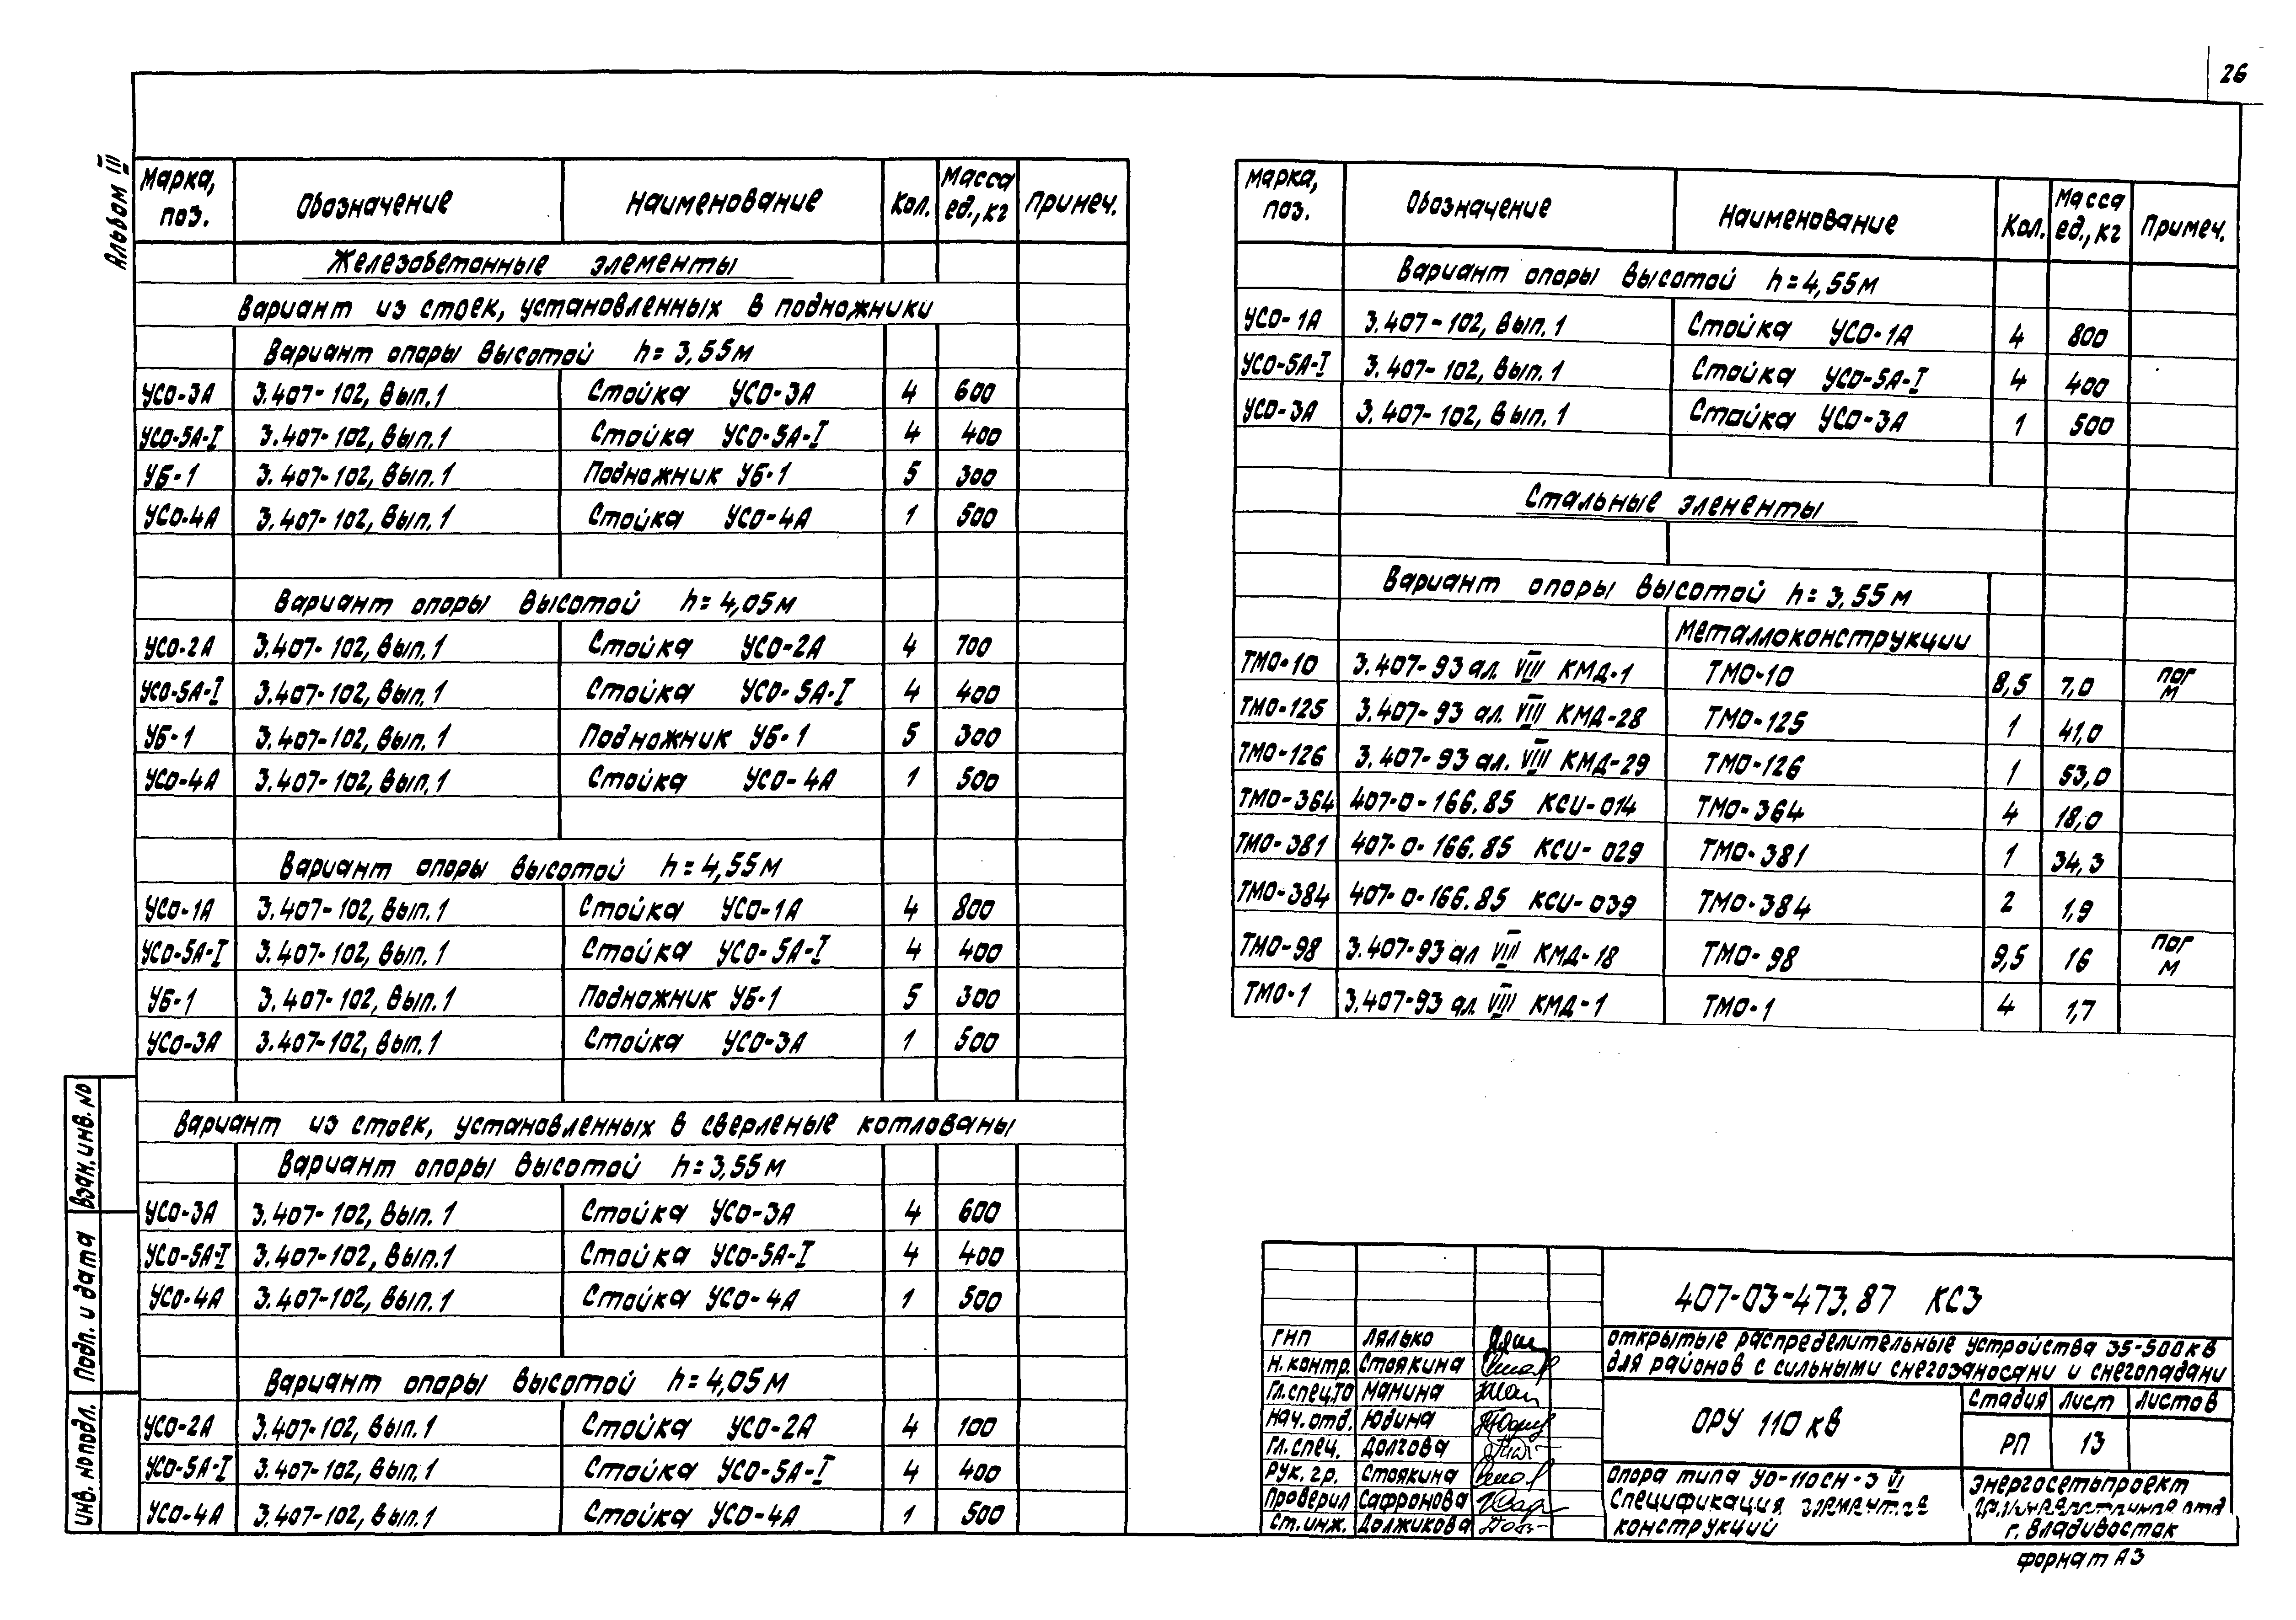 26
Альбом III
Марка, поз. Обозначение Наименование Кол. Масса ед., кг Примеч.
Железобетонные элементы
Вариант из стоек, установленных в подножники
Вариант опоры высотой h=3,55м
УСО-3А 3.407-102, вып.1 Стойка УСО-3А 4 600
УСО-5А-I 3.407-102, вып.1 Стойка УСО-5А-I 4 400
УБ-1 3.407-102, вып.1 Подножник УБ-1 5 300
УСО-4А 3.407-102, вып.1 Стойка УСО-4А 1 500
Вариант опоры высотой h=4,05м
УСО-2А 3.407-102, вып.1 Стойка УСО-2А 4 700
УСО-5А-I 3.407-102, вып.1 Стойка УСО-5А-I 4 400
УБ-1 3.407-102, вып.1 Подножник УБ-1 5 300
УСО-4А 3.407-102, вып.1 Стойка УСО-4А 1 500
Вариант опоры высотой h=4,55м
УСО-1А 3.407-102, вып.1 Стойка УСО-1А 4 800
УСО-5А-I 3.407-102, вып.1 Стойка УСО-5А-I 4 400
УБ-1 3.407-102, вып.1 Подножник УБ-1 5 300
УСО-3А 3.407-102, вып.1 Стойка УСО-3А 1 500
Вариант из стоек, установленных в сверленые котлованы
Вариант опоры высотой h=3,55м
УСО-3А 3.407-102, вып.1 Стойка УСО-3А 4 600
УСО-5А-I 3.407-102, вып.1 Стойка УСО-5А-I 4 400
УСО-4А 3.407-102, вып.1 Стойка УСО-4А 1 500
Вариант опоры высотой h=4,05м
УСО-2А 3.407-102, вып.1 Стойка УСО-2А 4 100
УСО-5А-I 3.407-102, вып.1 Стойка УСО-5А-I 4 400
УСО-4А 3.407-102, вып.1 Стойка УСО-4А 1 500
Взам. инв. №
Подп. и дата
Инв. № подл.
Марка, поз. Обозначение Наименование Кол. Масса ед., кг Примеч.
Вариант опоры высотой h=4,55м
УСО-1А 3.407-102, вып.1 Стойка УСО-1А 4 800
УСО-5А-I 3.407-102, вып.1 Стойка УСО-5А-I 4 400
УСО-3А 3.407-102, вып.1 Стойка УСО-3А 1 500
Стальные элементы
Вариант опоры высотой h=3,55м
Металлоконструкции
ТМО-10 3.407-93 ал. VIII КМД-1 ТМО-10 8,5 7,0 пог м
ТМО-125 3.407-93 ал. VIII КМД-28 ТМО-125 1 41,0
ТМО-126 3.407-93 ал. VIII КМД-29 ТМО-126 1 53,0
ТМО-364 407-0-166.85 КСИ-014 ТМО-364 4 18,0
ТМО-381 407-0-166.85 КСИ-029 ТМО-381 1 34,3
ТМО-384 407-0-166.85 КСИ-039 ТМО-384 2 1,9
ТМО-98 3.407-93 ал VIII КМД-18 ТМО-98 9,5 16 пог м
ТМО-1 3.407-93 ал. VIII КМД-1 ТМО-1 4 1,7
407-03-473.87 КС3
ГИП Лялько
Н.контр. Стоякина
Гл.спец.ТО Манина
Нач.отд. Юдина
Гл.спец. Долгова
Рук.гр. Стоякина
Проверил Сафронова
Ст.инж. Должикова
Открытые распределительные устройства 35-500кВ
для районов с сильными снегозаносами и снегопадами
ОРУ 110 кВ
Стадия Лист Листов
РП 13
Опора типа УО-110СН-3 VI
Спецификация элементов
конструкций
Энергосетьпроект
отд
г. Владивосток
Формат А3